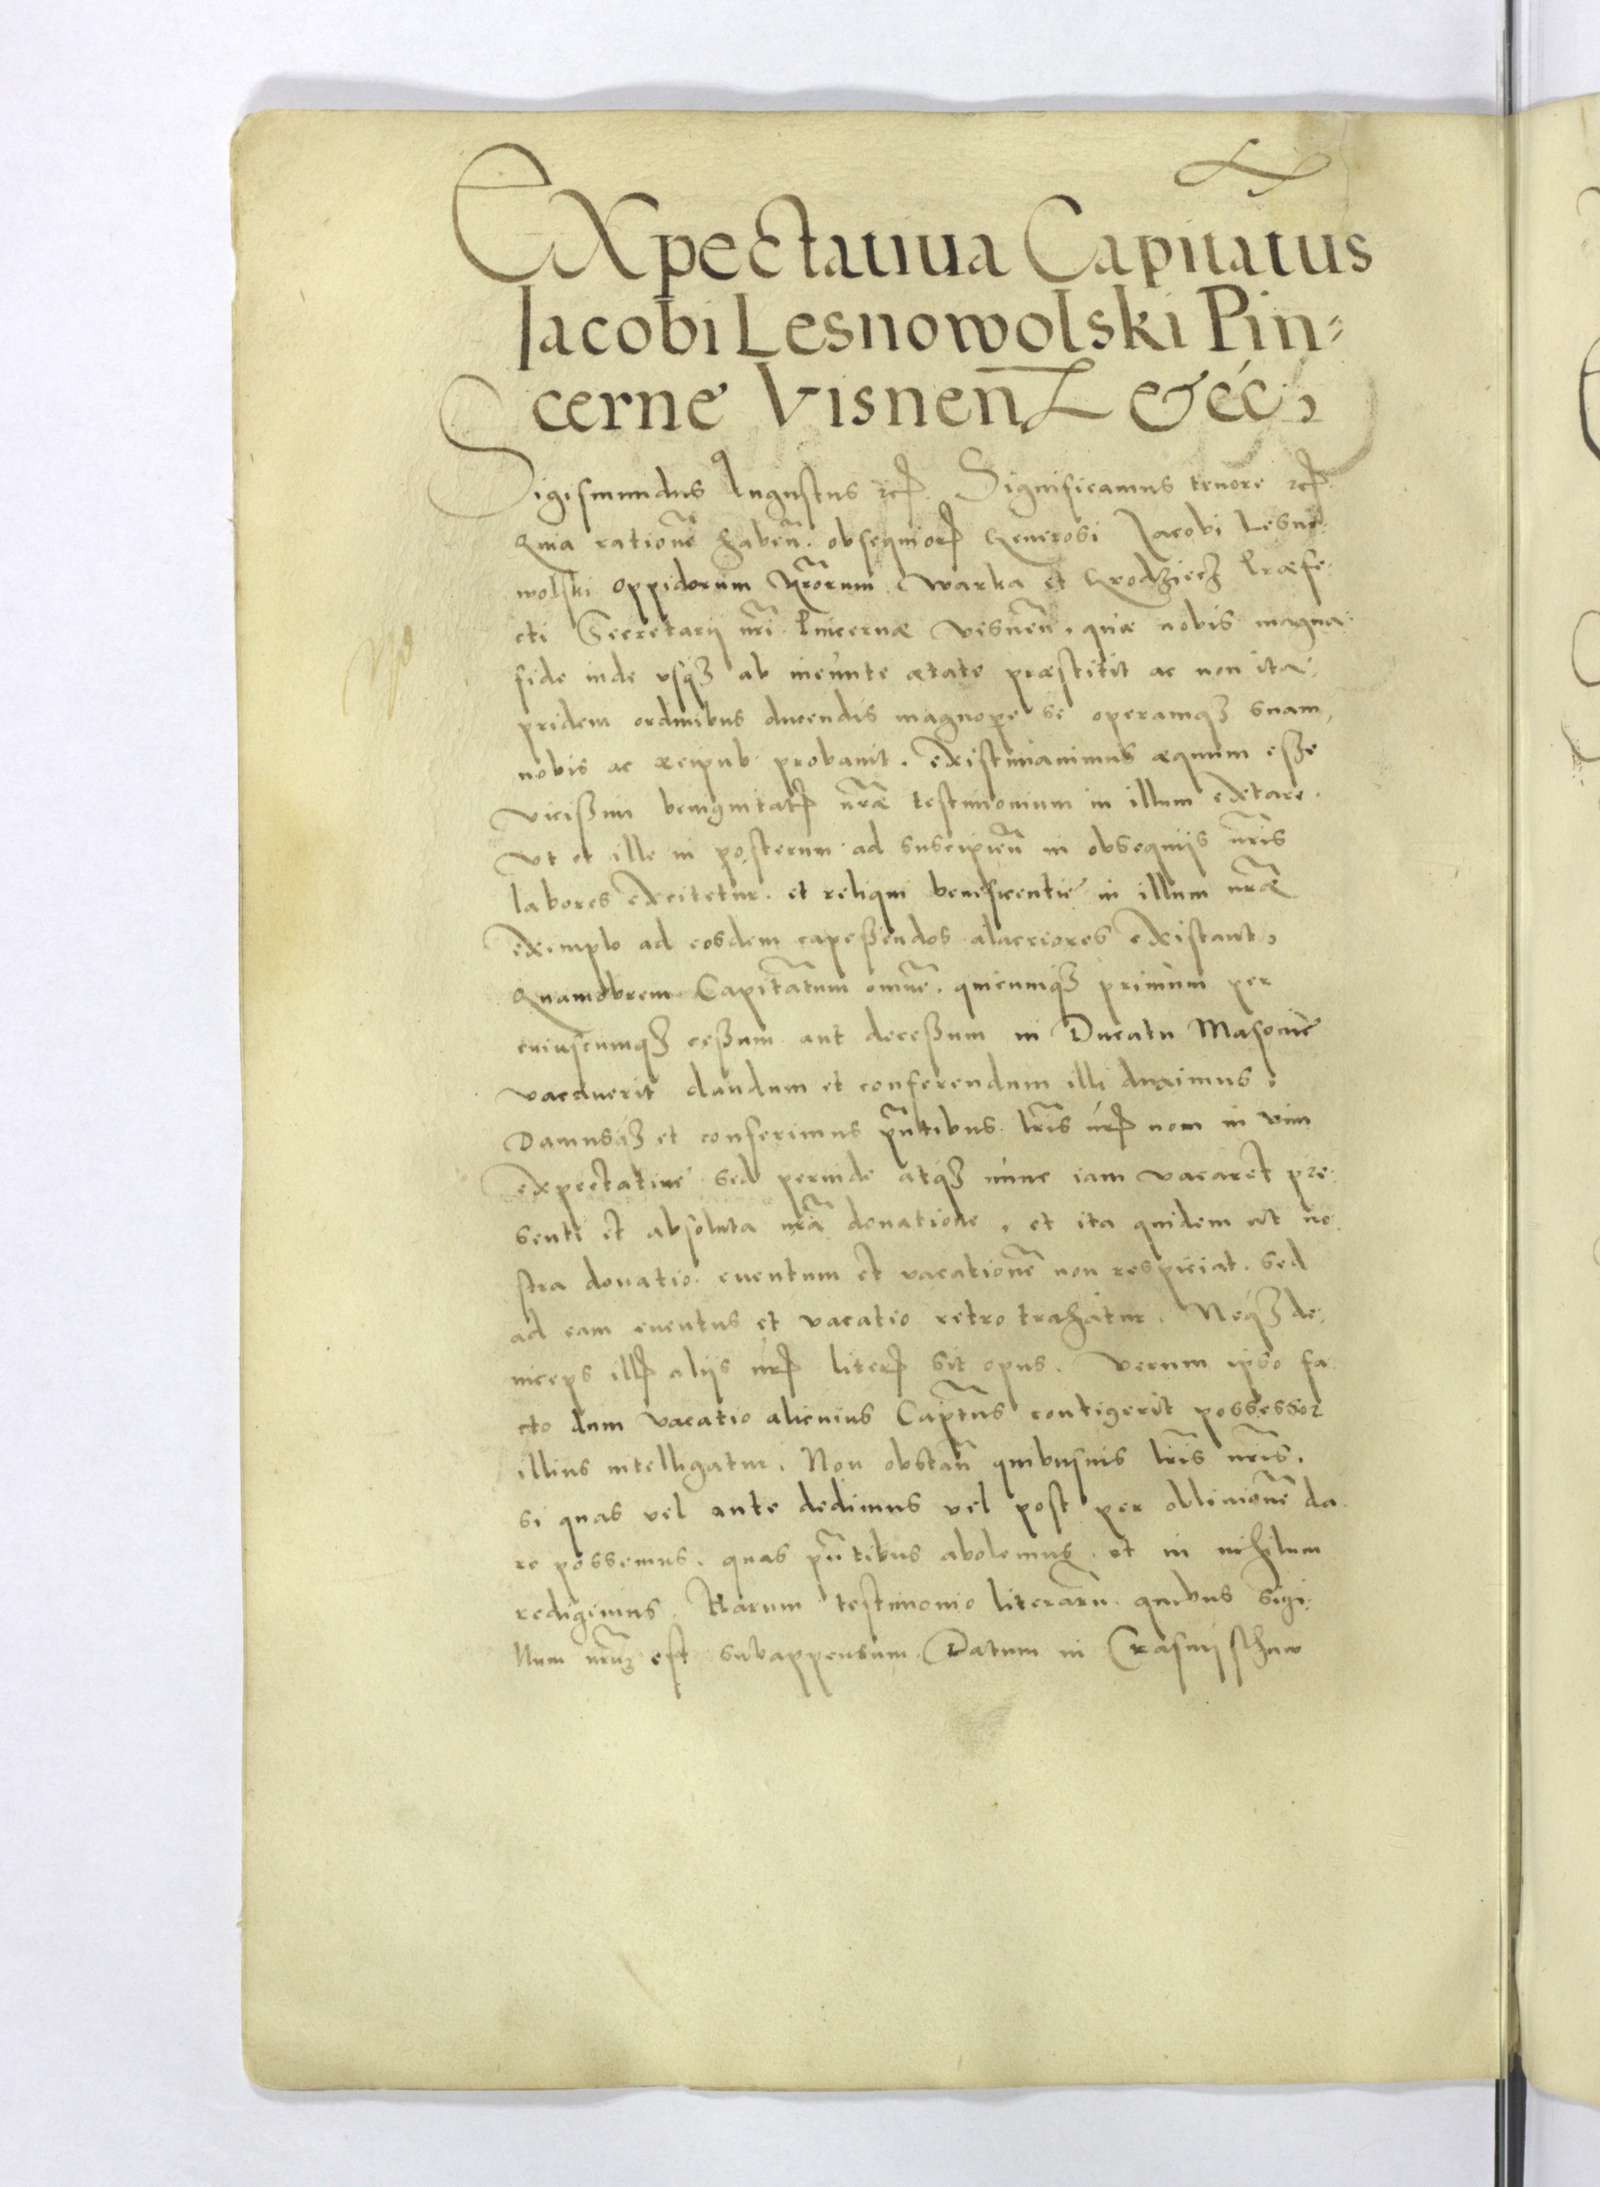 Expectatiua Capitatus
Iacobi Lesnowolski Pin=
cerne Visnen̄ &ć
Sigismundus Augustus etc. Significamus tenore etc.
Quia rationē haben̄. obsequiorꝭ Generosi Iacobi Lesno
wolski oppidorum nr̄orum Warka et Grodziecz Præfe
cti Secretarij nr̄i Pincernæ Visnen̄. quæ nobis magna
fide inde vsqȝ ab ineunte ætate præstitit ac non ita
pridem ordinibus ducendis magnope se operamqȝ suam
nobis ac reipub probauit. existimauimus æquum eße
vicißim benignitatꝭ nr̄æ testimonium in illum extare.
Vt et ille in posterum ad suscipien̄ in obsequijs nr̄is
labores excitetur. et reliqui beneficentie in illum nr̄æ
exemplo ad eosdem capeßendos alacriores existant,
Quamobrem Capitātum omnē. quicumqȝ primum per
cuiuscumqȝ ceßum aut deceßum in Ducatu Masouie
vacauerit dandum et conferendum illi duximus.
Damusqȝ et conferimus pn̄tibus lr̄is nr̄ꝭ non in vim
expectatiue sed perinde atqȝ nunc iam vacaret pre
senti et absoluta nr̄a donatione, et ita quidem ut no
stra donatio euentum et vacationē non respiciat. sed
ad eam euentus et vacatio retro trahatur. Neqȝ de
inceps illꝭ alijs nr̄ꝭ literꝭ sit opus. Verum ipso fa
cto dum vacatio alicuius Cap̄tus contigerit possessor
illius intelligatur. Non obstan̄ quibusuis lr̄is nr̄is.
si quas vel ante dedimus vel post per obliuionē da
re possemus. quas pn̄tibus abolemus. et in nihilum
redigimus. Harum testimonio literarū. quibus Sigi
llum nr̄um est subappensum. Datum in